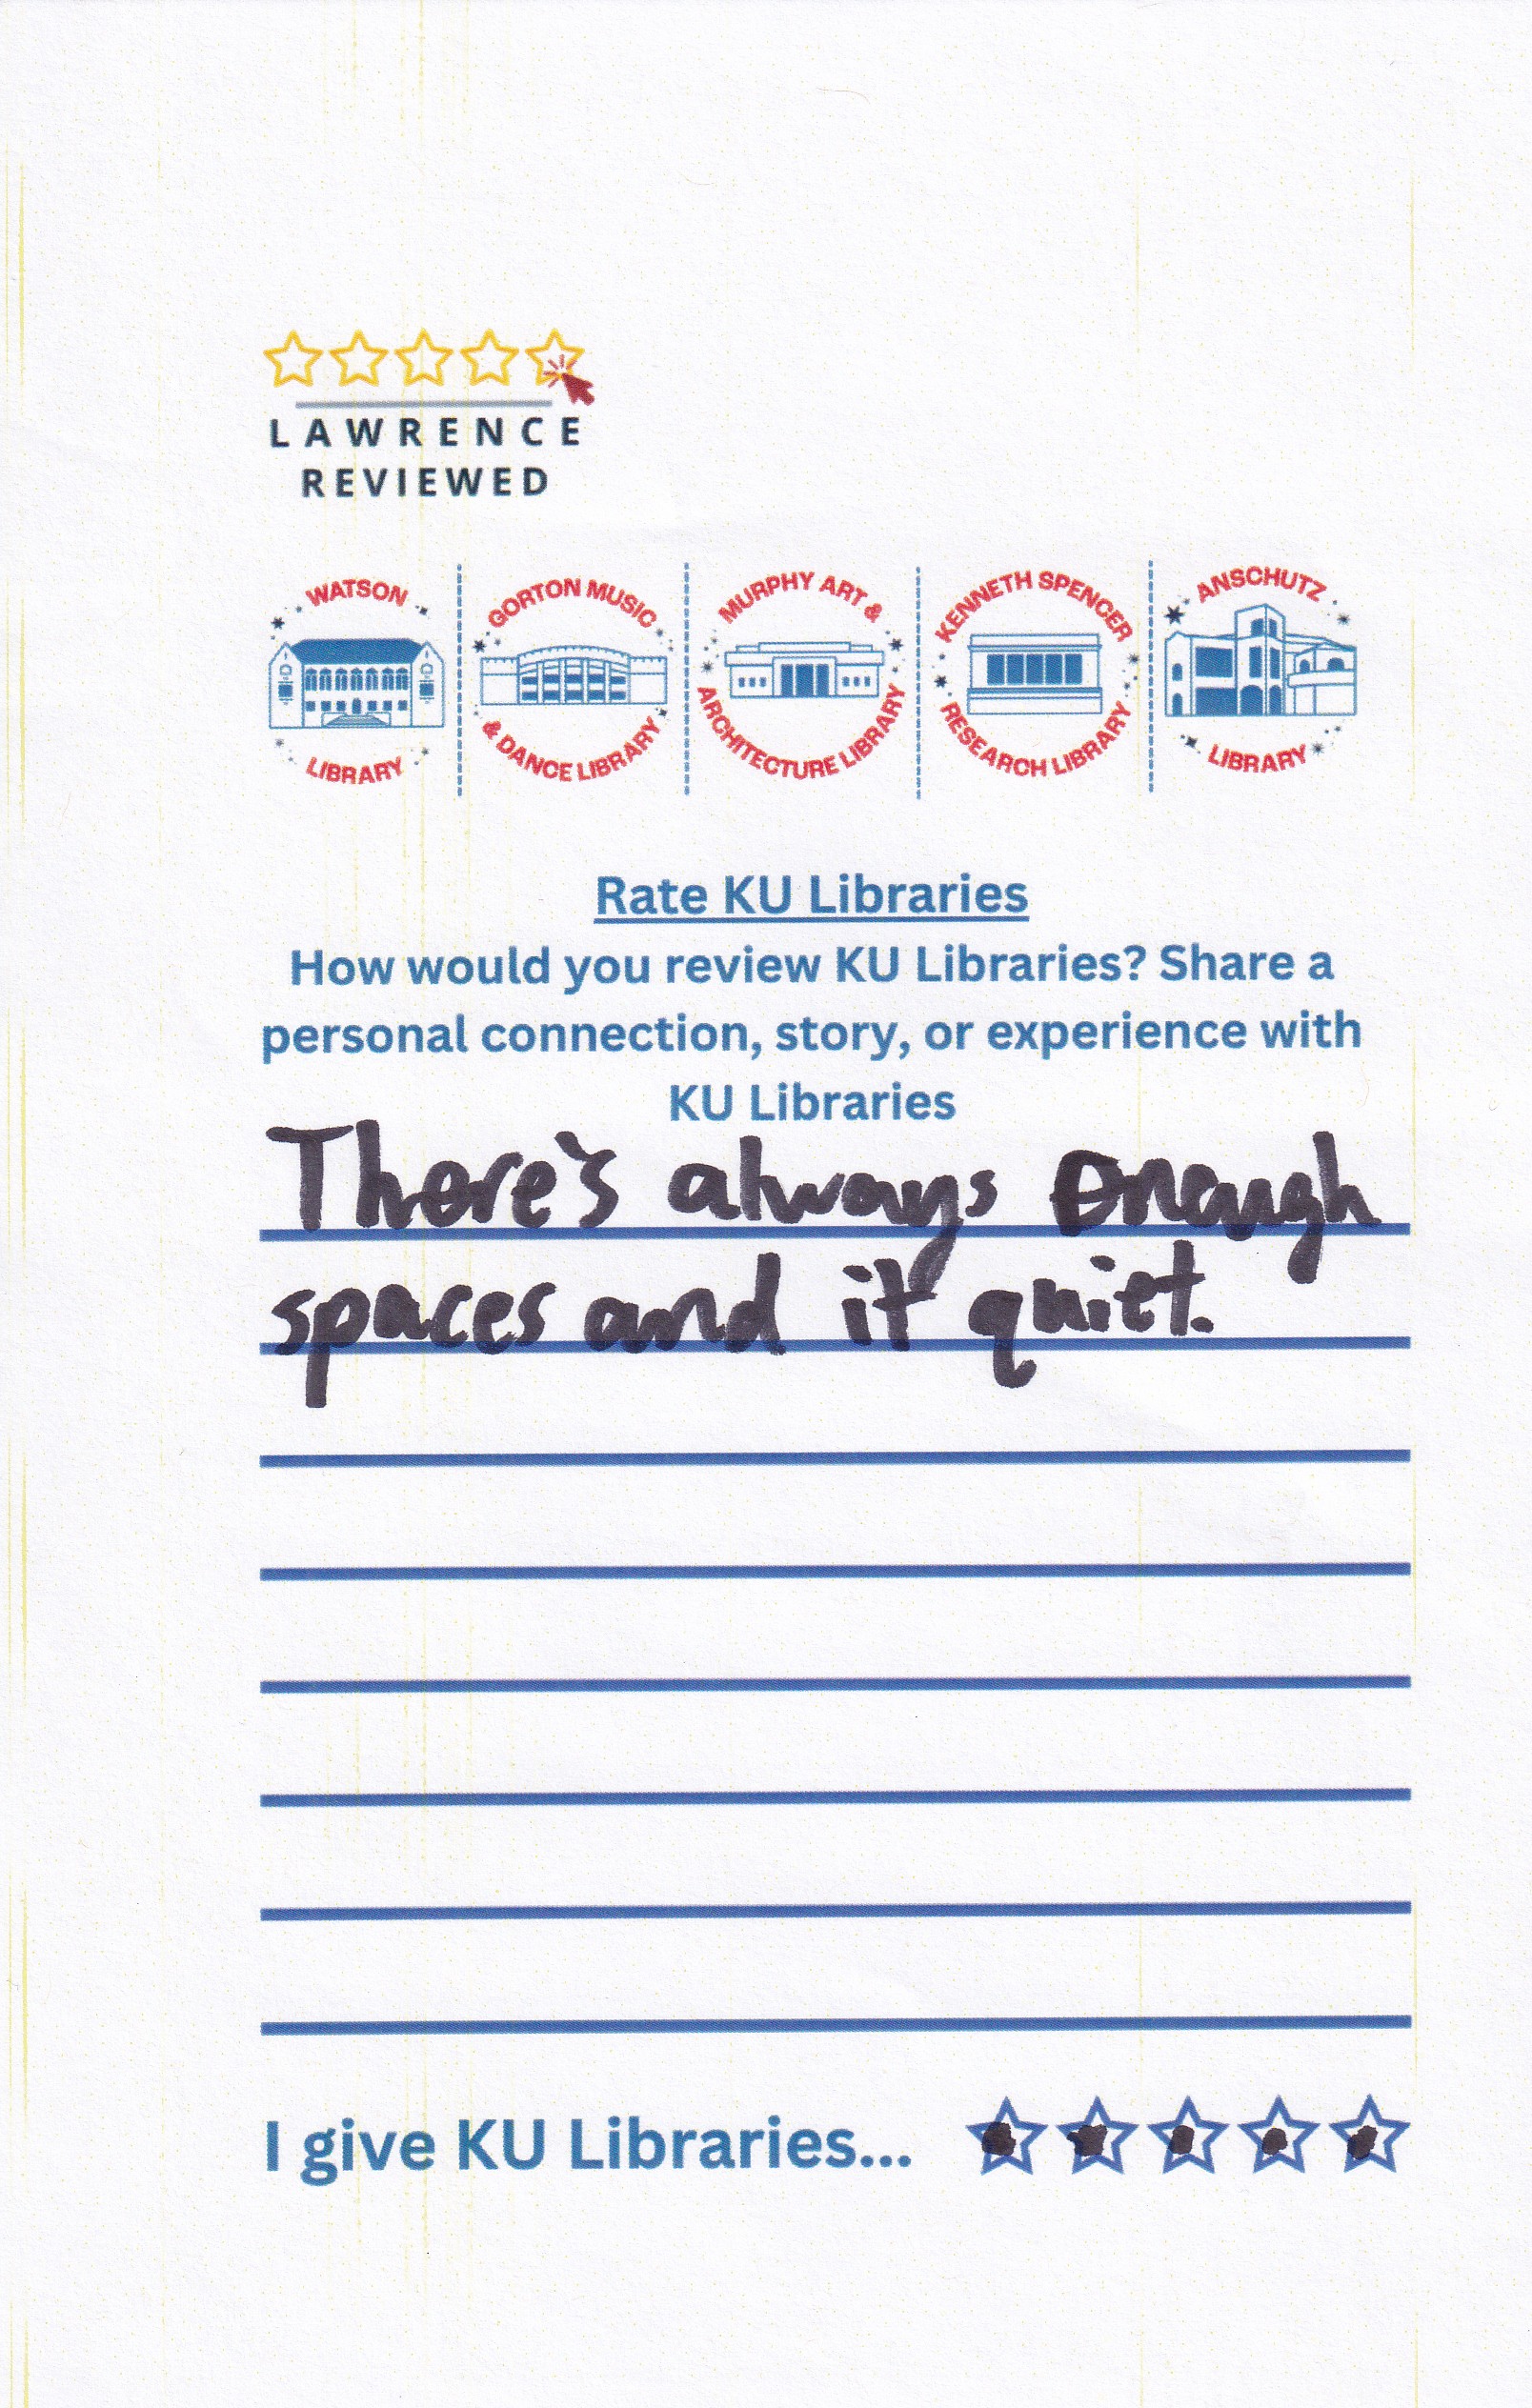 LAWRENCE
REVIEWED
WATSON
LIBRARY
GORTON MUSIC
& DANCE LIBRARY
MURPHY ART &
ARCHITECTURE LIBRARY
KENNETH SPENCER
RESEARCH LIBRARY
ANSCHUTZ
LIBRARY
Rate KU Libraries
How would you review KU Libraries? Share a
personal connection, story, or experience with
KU Libraries
There's always enough
spaces and it quiet.
I give KU Libraries...